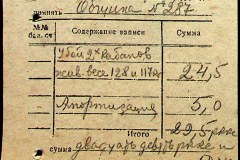 память Община № 287
№№ бал. сч. Содержание записи Сумма
Убой 2х кабанов
жив. весе 128 и 117 кг 24,5
Амортизация 5,0
Итого 29,5
сумма двадцать девять